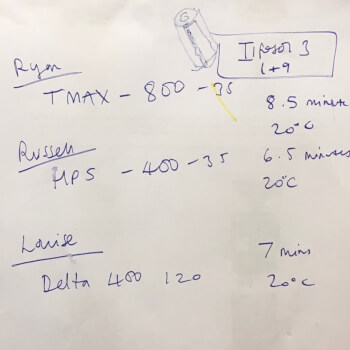 Ilfosol 3
1+9
Ryan
TMAX - 800 - 35
8.5 minute
20°C
Russell
HP5 - 400 - 35
6.5 minutes
20°C
Louise
7 mins
Delta 400 120
20°C